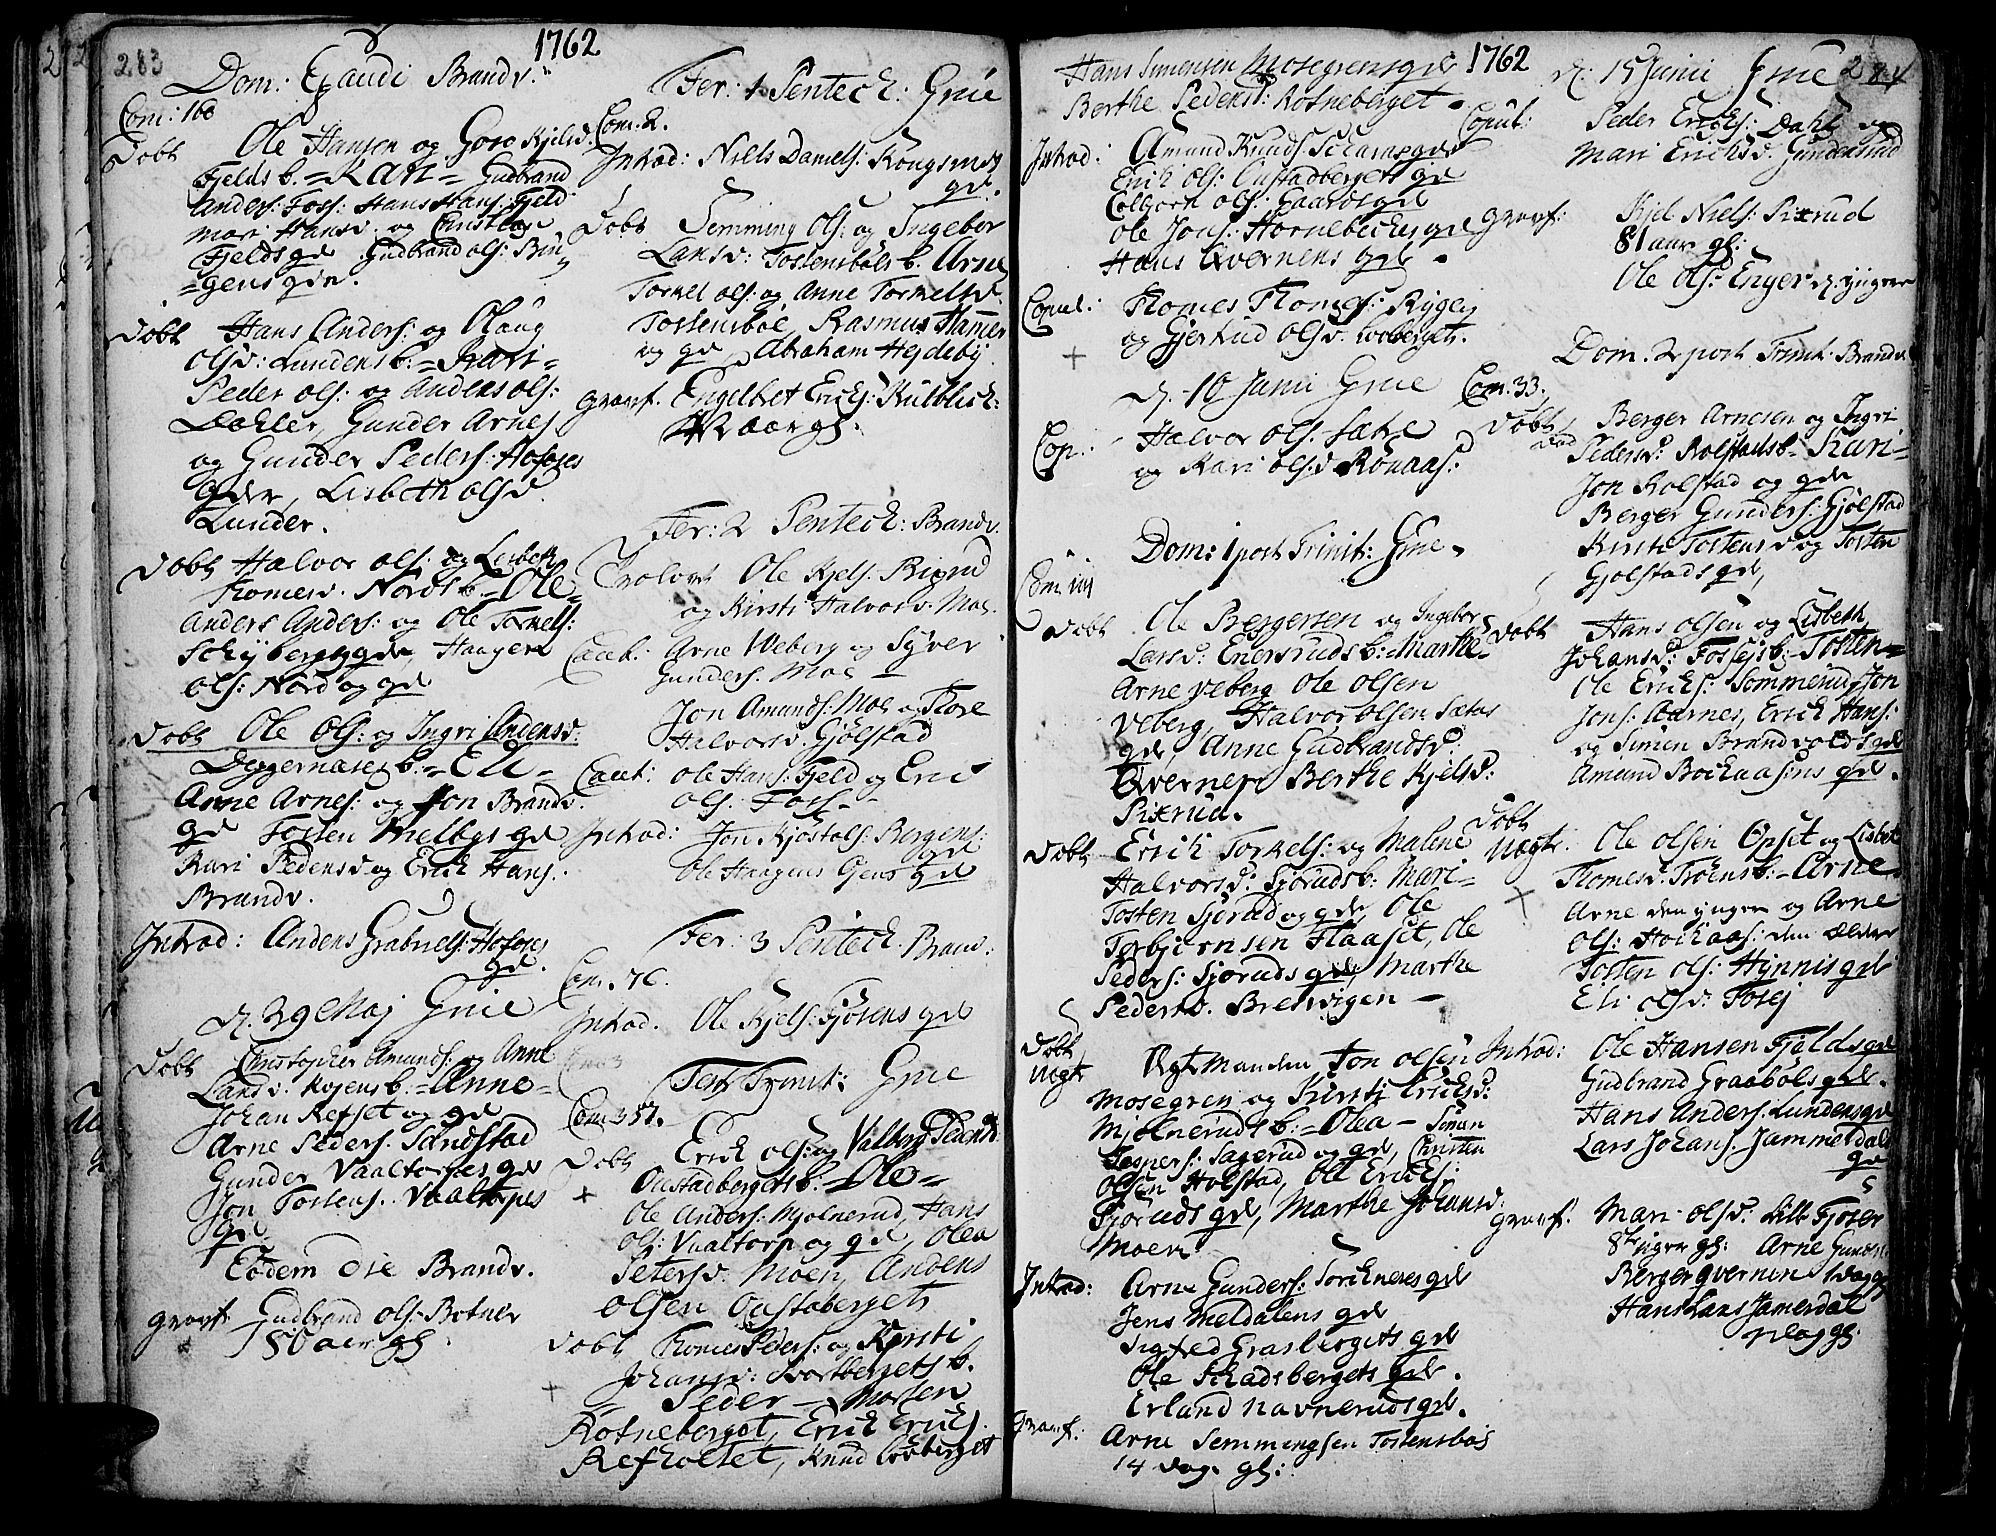 283
1762
Dom: Exaudi Brandv.
Com: 160
Dobt Ole Hansen og Goro Kjelsd.
Fjelds b. = Kari = Gudbrand
Anders: Foss: Hans Hans: Fjeld
Mari Hansd. og
Fjelds gde Gudbrand Ols: Bin
=gens gde.
Dobt Hans Anders: og Olaug
Olsd: Lundens b. = Kari =
Peder Ols: og Anders Ols:
Gunder Arnes
og Gunder Peders: Hofoses
gde, Lisbeth Olsd.
Lunder.
Dobt Halvor Ols: og Lisbeth
Thomesd. Nords b. = Ole =
Anders Anders: og Ole Torkels:
gde, Haagen
Ols: Nord og gde
Dobt Ole Ols: og Ingri Andersd:
b. = Eli =
Arne Arnes: og Jon Brandv.
gde Tosten Melbys gde
Kari Pedersd og Erich Hans:
Brandv.
Introd: Anders Gabriels: Hofoses
gde.
d. 29 Maj Grue
Dobt Christopher Amunds: og Anne
Larsd. b. = Anne =
Johan Refset og gde
Arne Peders: Sandstad
Gunder Vaaltorpes gde
Jon Tostens. Vaaltorpes
gde
Eodem die Brandv.
Gravf. Gudbrand Ols: Botner
80 aar gl:
Fer: 1 Pentech: Grue
Com. 2.
Introd: Niels Daniels: Kongsmos
gde.
Dobt Semming Ols: og Ingebor
Larsd: Tostensbøls b. Arne
Torkel Ols: og Anne Torkelsd.
Tostensbøl, Rasmus Hammer
og gde, Abraham Hejdeby
Gravf. Engelbret Erichs: Kulblich:
aar gl:
Fer: 2 Pentech: Brandv.
Trolovt Ole Kjels: Rigrud
og Kirsti Halvorsd. Moe.
Caut: Arne Weberg og Syver
Gunders. Moe
Jon Amunds: Moe og Thore
Halvorsd. Gjølstad
Caut: Ole Hans: Fjeld og Eric
Ols: Foss
Introd: Jon Kjøstols: Bergens:
gde
Ole Haagens Gjens gde
Fer: 3 Pentech. Brand:
Com. 76.
Introd. Ole Kjels: Fjøsens gde
Fest Trinit: Grue
Com: 357.
Dobt Erich Ols: og Valborg Pedersd.
Oustadbergets b: = Ole =
Ole Anders: Mjølnerud, Hans
Ols: Vaaltorp og gde, Olea
Petersd. Moen, Anders
Olsen Oustaberget
Dobt Thomes Peders: og Kersti
Johansd: Svartbergets b.
Peder = Morten
Rotneberget, Erich Erichs.
Refholtet, Knud Løvberget
Hans Simensen Mosegrensgde
Berthe Pedersd: Rotneberget
1762
Introd: Amund Knuds.
Erich Ols: Oustadbergets gde
Colborn Ols: Gaards gde
Ole Jons: Hornebeches gde
Hans Qvernens gde
Copul: Thomes Thomes: Rygen
og Gjertrud Olsd. Løvberget.
d. 10 Junii Grue
Cop: Halvor Ols. Sætre
og Kari Olsd Rønaas:
Dom: 1 post Trinit: Grue.
Com 101
Dobt Ole Bergersen og Ingebor
Larsd: Enersruds b: = Marthe =
Arne Veberg Ole Olsen
Veberg, Halvor Olsen Sætes
gde, Anne Gudbrandsd:
Qvernen Berthe Kjelsd:
Sixrud.
Dobt Erich Torkels: og Malene
Halvorsd: Sjøruds b: Mari =
Tosten Sjørud og gde Ole
Torbjørnsen Flaaset, Ole
Peders: Sjøruds gde, Marthe
Pedersd. Bredvigen
Dobt
uegte Ugt Manden Jon Olsen
Mosegren og Kirsti Erichsd:
Mjølneruds b: = Olea = Simen
Jespers: Sagerud og gde, Christen
Olsen Holstad, Ole Erichs:
Sjøruds gde, Marthe Johansd.
Moen
Introd: Arne Gunders: gde
Jens Meldalens gde
Sigfred Grasbergets gde
Ole Skadsbergets gde.
Erland Navneruds gde.
Gravf: Arne Semmingsen Tostensbøs
14 dag. gl:
d. 15 Junii Grue
284
Copul: Peder Erichs: Dahl og
Mari Erichsd. Gundersrud
Gravf: Kjel Niels: Sixrud
81 aar gl:
Ole Ols: Enger d. yngere
Dom. 2 post Trinit. Brandv
Com. 33.
Dobt Berger Arnesen og Ingri
Pedersd: Rolstads b = Kari =
Jon Rolstad og gde
Berger Gunders: Gjølstad
Kirsti Tostensd og Tosten
Gjølstads gde,
Dobt Hans Olsen og Lisbeth
Johansd: b: = Tosten =
Ole Erichs: Sommerud, Jon
Jons: Aarnes, Erich Hans:
og Simen Brandvolds gde
Amund Bochaasens gde.
Dobt
uegte. Ole Olsen Opset og Lisbet
Thomesd. Trøens b: = Arne =
Arne den yngre og Arne
Ols: Hochaas: den ældre
Tosten Ols: Hynnis gde
Eli Olsd.
Introd: Ole Hansen Fjelds gde
Gudbrand Graabøls gde.
Hans Anders: Lundens gde
Lars Johans: Jammerdal
gde
Gravf. Mari Olsd. Lille Fjøser
8 uger gl: Arne Gunders
Berger Qvernen 1 dag gl
Hans Lars Jamerdal
dag gl: